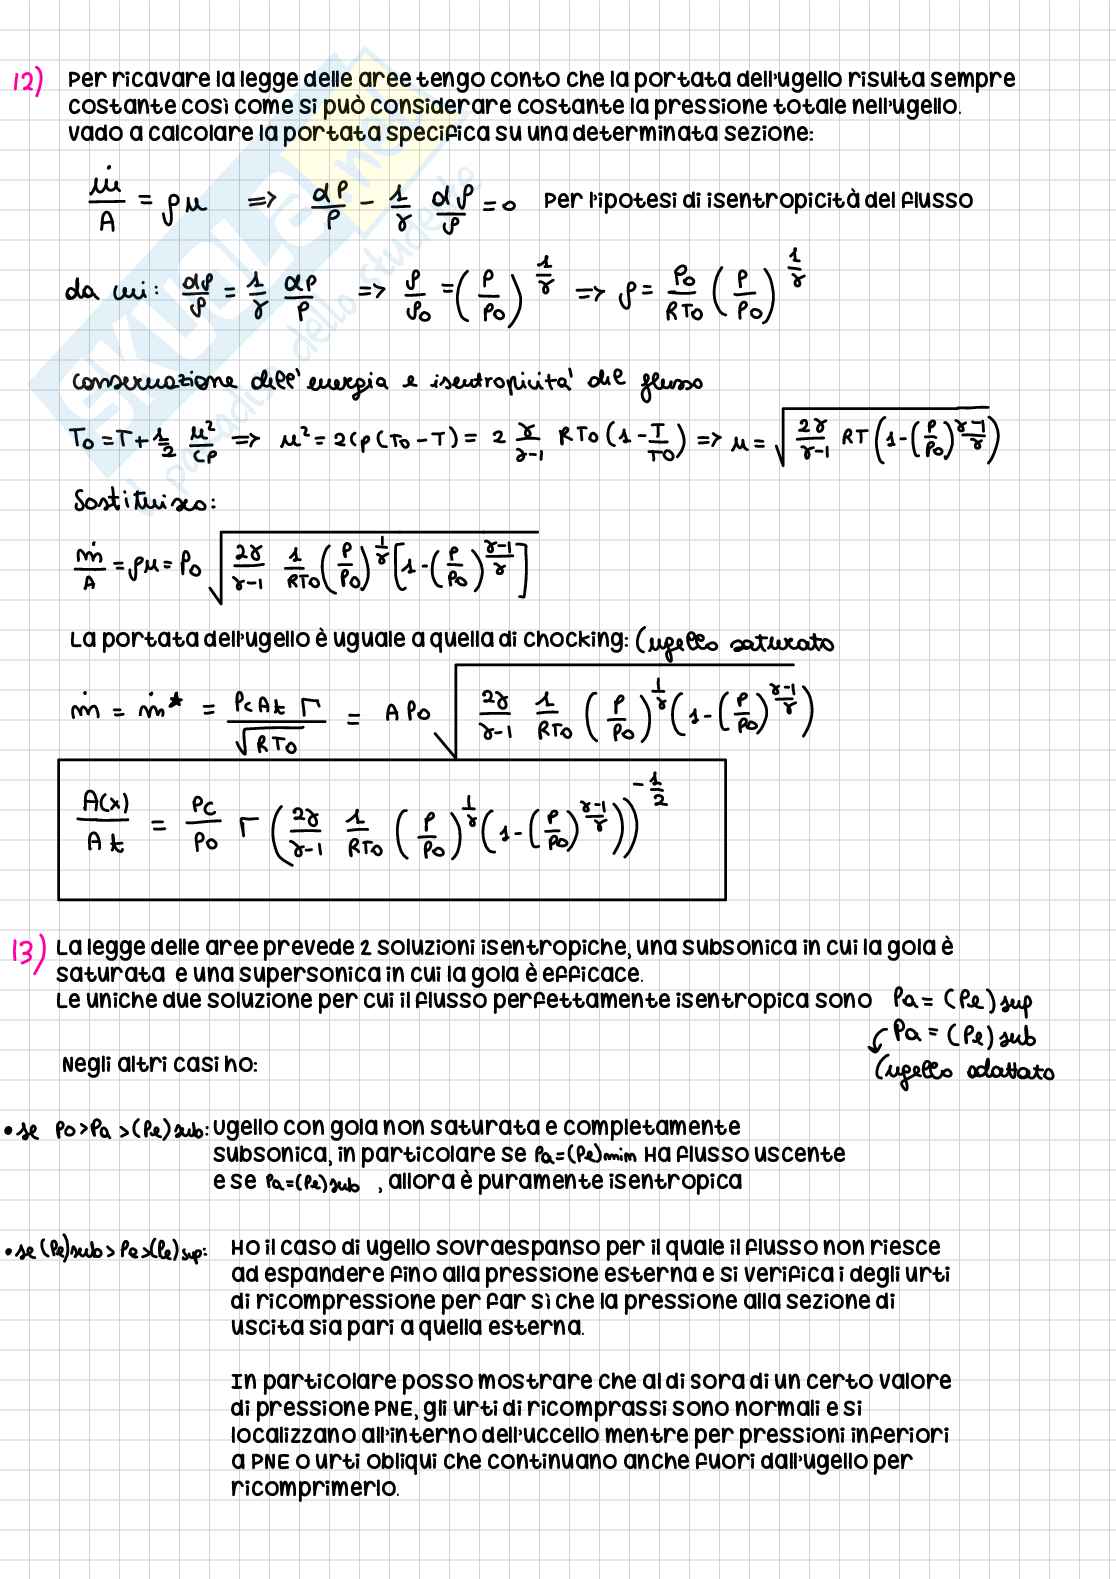 12) Per ricavare la legge delle aree tengo conto che la portata dell'ugello risulta sempre
costante così come si può considerare costante la pressione totale nell'ugello.
Vado a calcolare la portata specifica su una determinata sezione:
ṁ/A = ρu => dP/P - 1/γ dρ/ρ = 0 Per l'ipotesi di isentropicità del flusso
da cui: dρ/ρ = 1/γ dP/P => ρ/ρ0 = (P/P0)^(1/γ) => ρ = P0/RT0 (P/P0)^(1/γ)
Conservazione dell'energia e isentropicita' del flusso
T0 = T + 1/2 u²/cp => u² = 2cp(T0-T) = 2 γ/(γ-1) RT0 (1 - T/T0) => u = √(2γ/(γ-1) RT (1-(P/P0)^((γ-1)/γ)))
Sostituisco:
ṁ/A = ρu = P0 √(2γ/(γ-1) 1/RT0 (P/P0)^(1/γ) [1-(P/P0)^((γ-1)/γ)])
La portata dell'ugello è uguale a quella di chocking: (ugello saturato
ṁ = ṁ* = Pc At Γ/√(RT0) = A P0 √(2γ/(γ-1) 1/RT0 (P/P0)^(1/γ) (1-(P/P0)^((γ-1)/γ)))
A(x)/At = Pc/P0 Γ (2γ/(γ-1) 1/RT0 (P/P0)^(1/γ) (1-(P/P0)^((γ-1)/γ)))^(-1/2)
13) La legge delle aree prevede 2 soluzioni isentropiche, una subsonica in cui la gola è
saturata e una supersonica in cui la gola è efficace.
Le uniche due soluzione per cui il flusso perfettamente isentropica sono Pa = (Pe)sup
Pa = (Pe)sub
(ugello adattato
Negli altri casi ho:
• se P0>Pa>(Pe)sub: Ugello con gola non saturata e completamente
subsonica, in particolare se Pa=(Pe)min Ha flusso uscente
e se Pa=(Pe)sub , allora è puramente isentropica
• se (Pe)sub > Pa >(Pe)sup: Ho il caso di ugello sovraespanso per il quale il flusso non riesce
ad espandere fino alla pressione esterna e si verifica i degli urti
di ricompressione per far sì che la pressione alla sezione di
uscita sia pari a quella esterna.
In particolare posso mostrare che al di sora di un certo valore
di pressione PNE, gli urti di ricomprassi sono normali e si
localizzano all'interno dell'uccello mentre per pressioni inferiori
a PNE o urti obliqui che continuano anche fuori dall'ugello per
ricomprimerlo.
SKUOLA.net
il paradiso dello studente